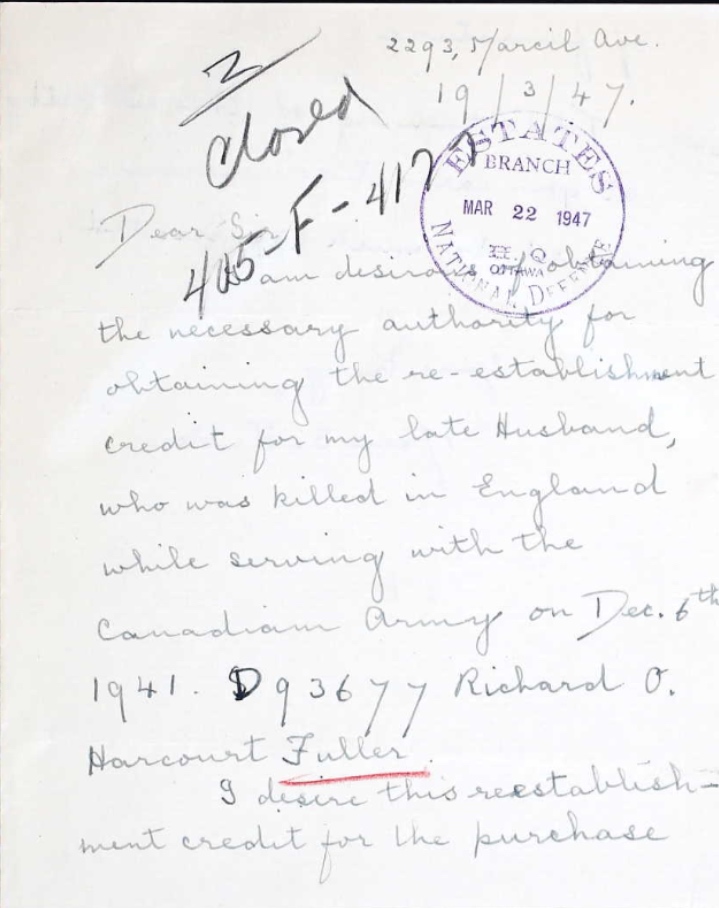 2293, Marcil Ave.
19/3/47.
2
closed
405-F-4177
ESTATES
BRANCH
MAR 22 1947
H. Q.
OTTAWA
NATIONAL DEFENCE
Dear Sir
am desirous of obtaining
the necessary authority for
obtaining the re-establishment
credit for my late Husband,
who was killed in England
while serving with the
Canadian Army on Dec. 6th
1941. D93677 Richard O.
Harcourt Fuller.
I desire this reestablish-
ment credit for the purchase